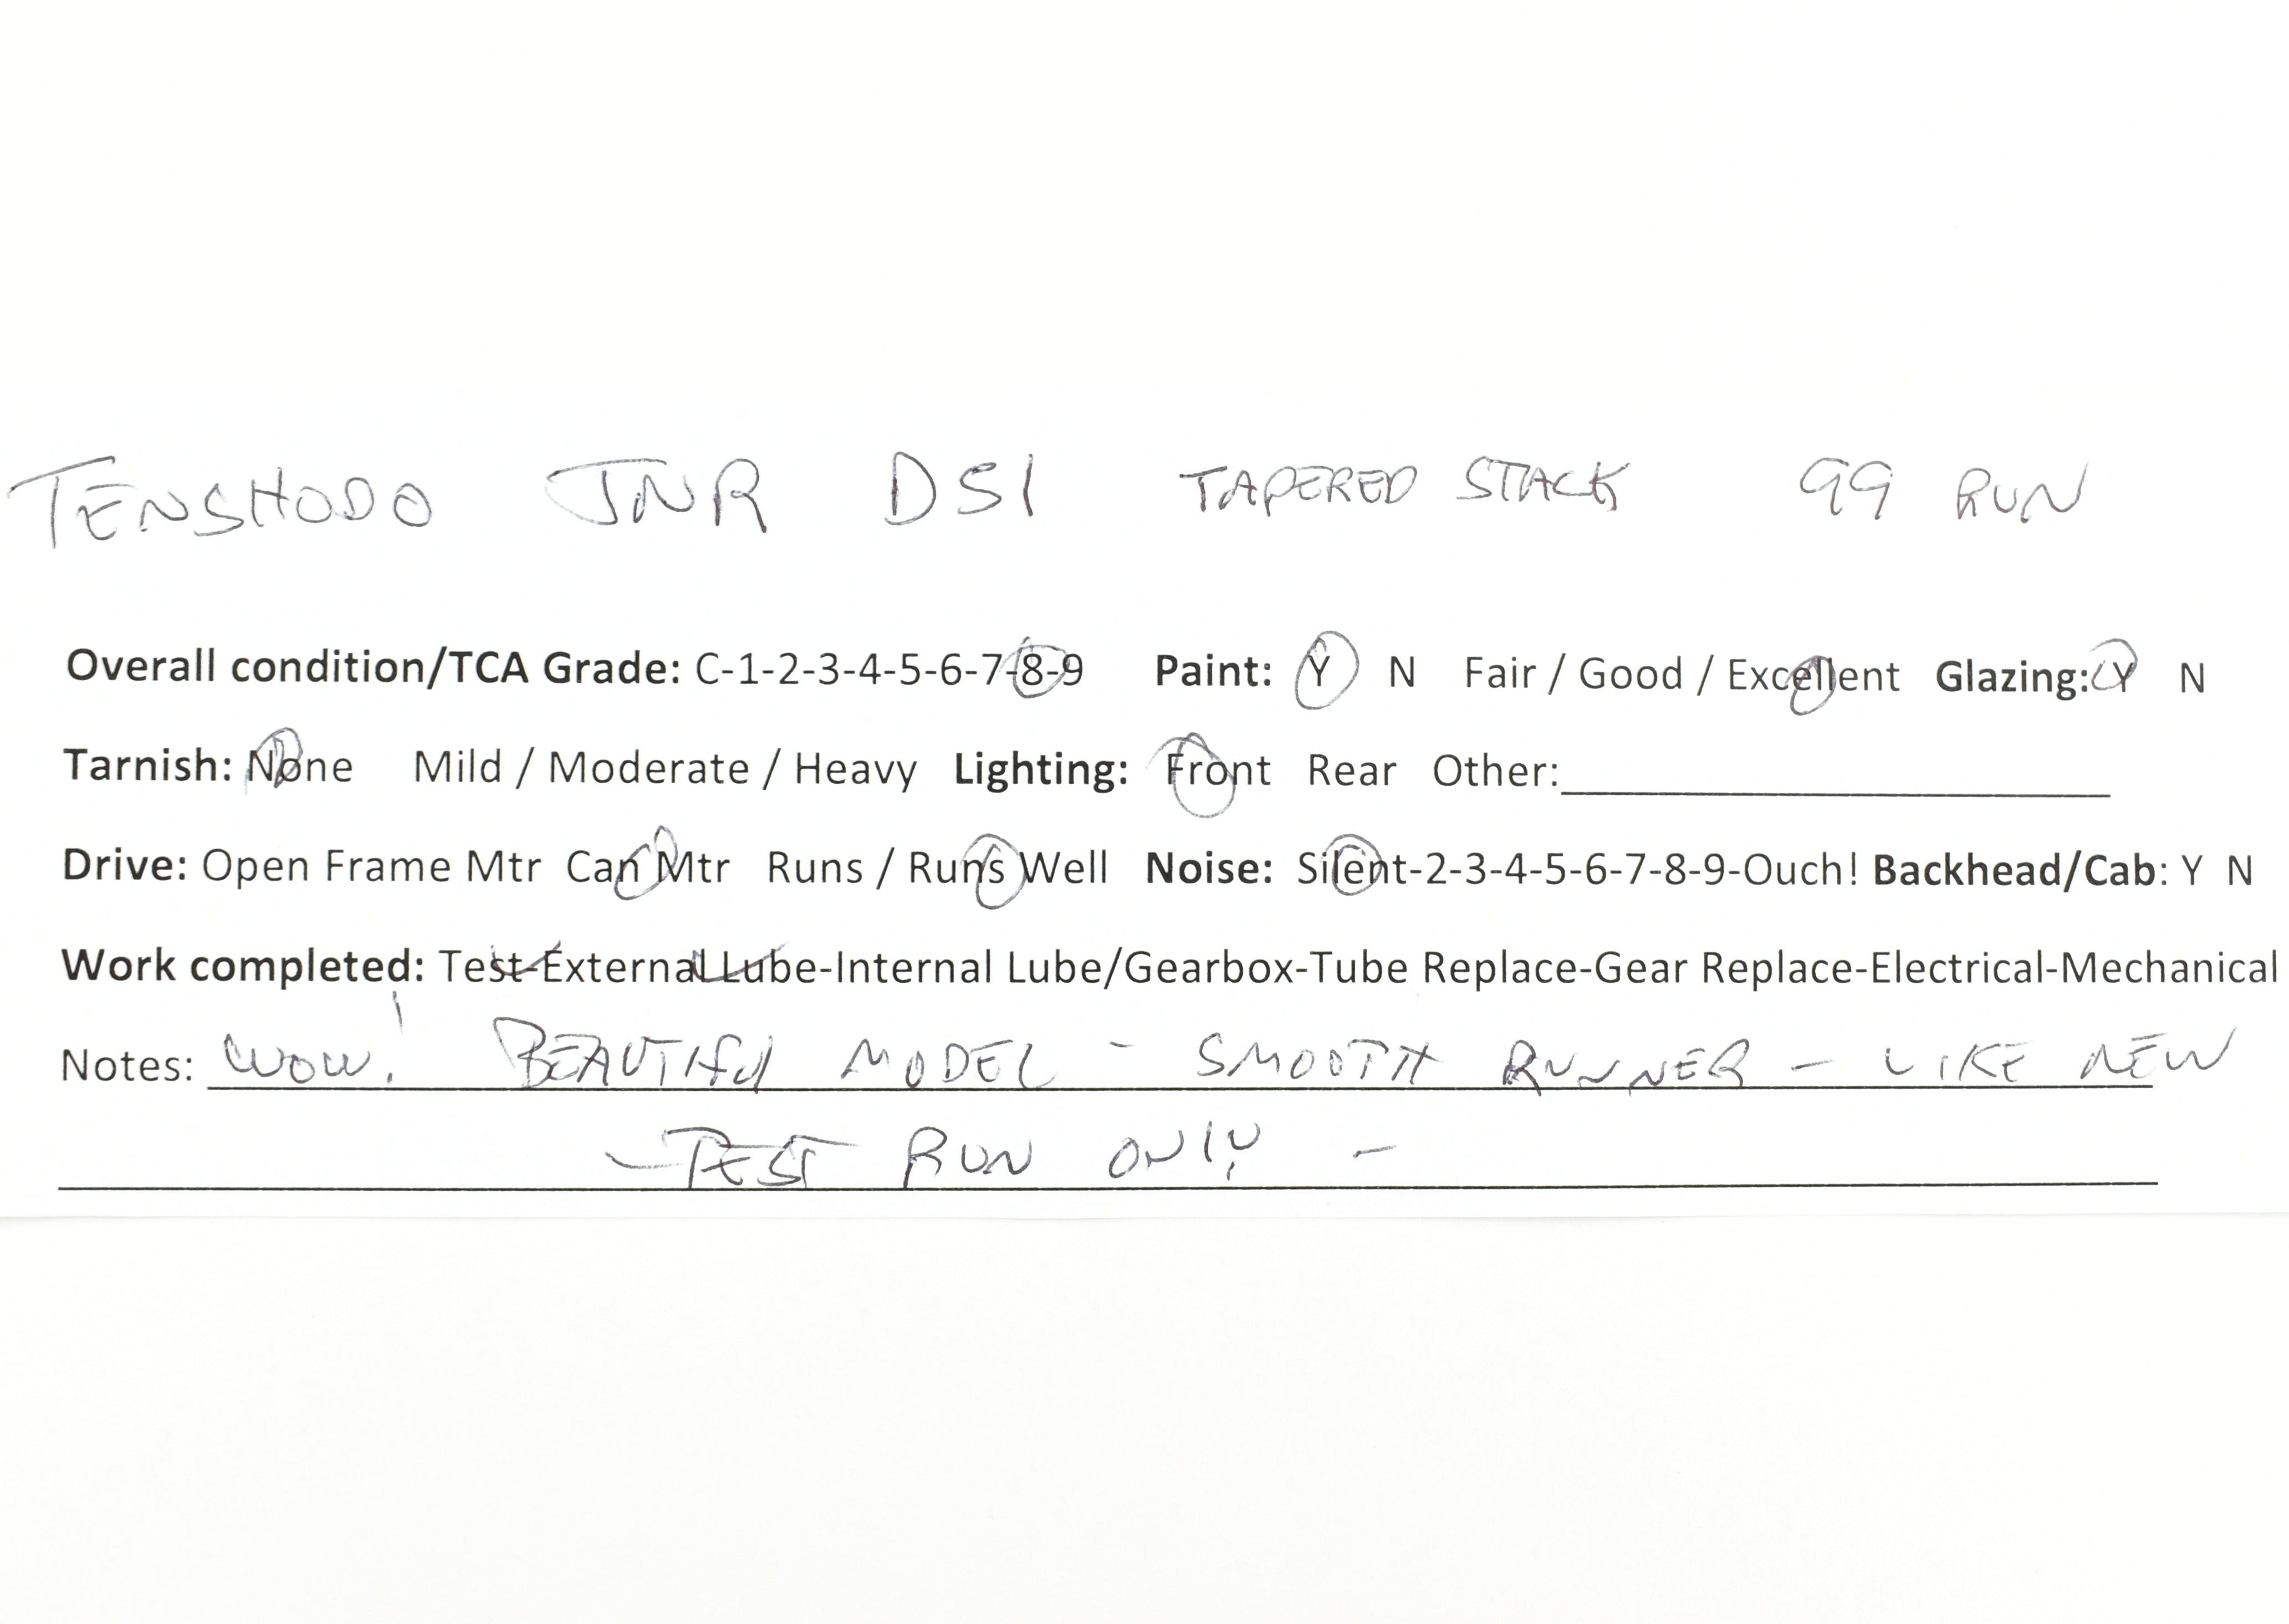 TENSHODO JNR D51 TAPERED STACK 99 RUN
Overall condition/TCA Grade: C-1-2-3-4-5-6-7-8-9 Paint: Y N Fair / Good / Excellent Glazing: Y N
Tarnish: None Mild / Moderate / Heavy Lighting: Front Rear Other:
Drive: Open Frame Mtr Can Mtr Runs / Runs Well Noise: Silent-2-3-4-5-6-7-8-9-Ouch! Backhead/Cab: Y N
Work completed: Test-External Lube-Internal Lube/Gearbox-Tube Replace-Gear Replace-Electrical-Mechanical
Notes: WOW! BEAUTIFUL MODEL - SMOOTH RUNNER - LIKE NEW
- TEST RUN ONLY -